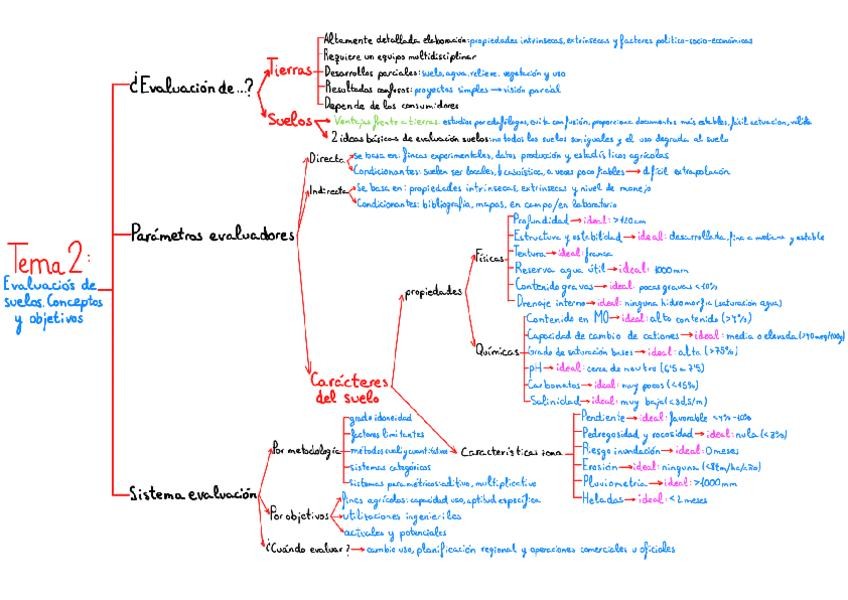 Tema 2:
Evaluación de
suelos. Conceptos
y objetivos
¿Evaluación de...?
Tierras
Altamente detallada elaboración: propiedades intrínsecas, extrínsecas y factores político-socio-económicos
Requiere un equipo multidisciplinar
Desarrollos parciales: suelo, agua, relieve, vegetación y uso
Resultados confusos: proyectos simples → visión parcial
Depende de los consumidores
Suelos
Ventajas frente a tierras: estudios por edafólogos, evita confusión, proporciona documentos más estables, fácil actuación, válida
2 ideas básicas de evaluación suelos: no todos los suelos son iguales y el uso degrada al suelo
Parámetros evaluadores
Directa
Se basa en: fincas experimentales, datos producción y estadísticos agrícolas
Condicionantes: suelen ser locales, casuística, a veces poco fiables → difícil extrapolación
Indirecta
Se basa en: propiedades intrínsecas, extrínsecas y nivel de manejo
Condicionantes: bibliografía, mapas, en campo/en laboratorio
Carácteres
del suelo
propiedades
Físicas
Profundidad → ideal: >120cm
Estructura y estabilidad → ideal: desarrollada, fina a mediana y estable
Textura → ideal: franca
Reserva agua útil → ideal: 1000mm
Contenido gravas → ideal: pocas gravas <10%
Drenaje interno → ideal: ninguna hidromorfía (saturación agua)
Químicas
Contenido en MO → ideal: alto contenido (>4%)
Capacidad de cambio de cationes → ideal: media o elevada
Grado de saturación bases → ideal: alta (>75%)
pH → ideal: cerca de neutro (6'5 a 7'5)
Carbonatos → ideal: muy pocos (<15%)
Salinidad → ideal: muy baja
Características zona
Pendiente → ideal: favorable
Pedregosidad y rocosidad → ideal: nula
Riesgo inundación → ideal: 0 meses
Erosión → ideal: ninguna
Pluviometría → ideal: >1000mm
Heladas → ideal: <2 meses
Sistema evaluación
Por metodología
grado idoneidad
factores limitantes
métodos cuali y cuantitativos
sistemas categóricos
sistemas paramétricos: aditivo, multiplicativo
Por objetivos
fines agrícolas: capacidad uso, aptitud específica
utilizaciones ingenieriles
actuales y potenciales
¿Cuándo evaluar? → cambio uso, planificación regional y operaciones comerciales u oficiales